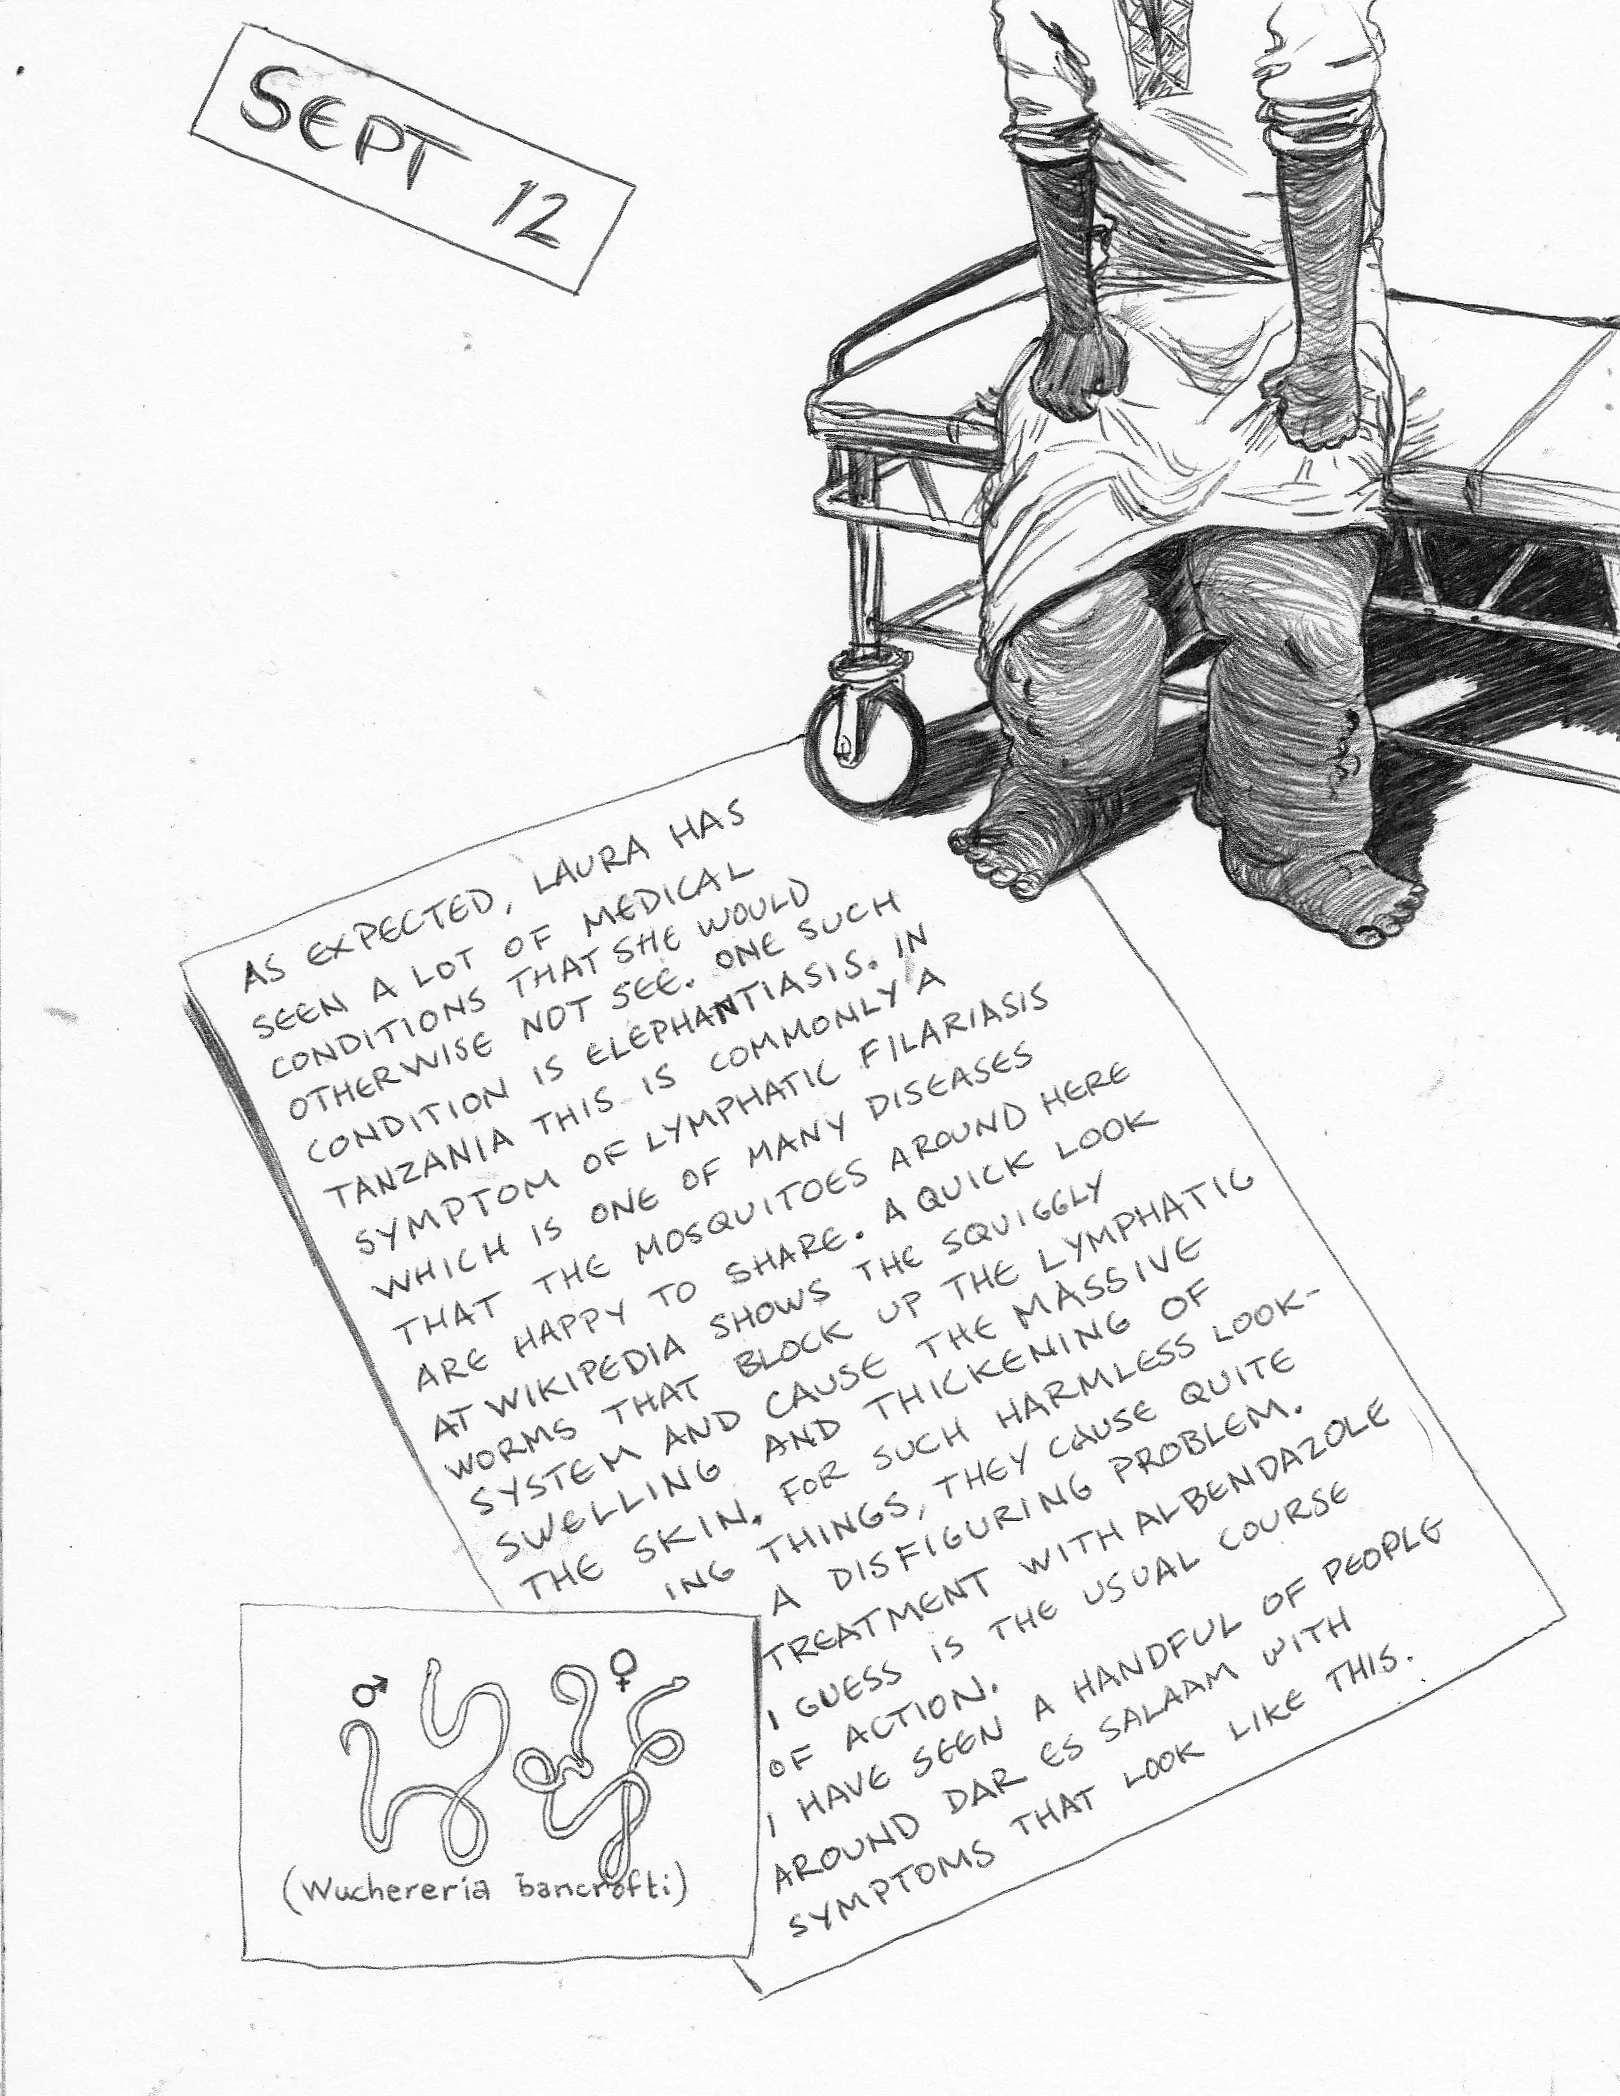 SEPT 12
AS EXPECTED, LAURA HAS
SEEN A LOT OF MEDICAL
CONDITIONS THAT SHE WOULD
OTHERWISE NOT SEE. ONE SUCH
CONDITION IS ELEPHANTIASIS. IN
TANZANIA THIS IS COMMONLY A
SYMPTOM OF LYMPHATIC FILARIASIS
WHICH IS ONE OF MANY DISEASES
THAT THE MOSQUITOES AROUND HERE
ARE HAPPY TO SHARE. A QUICK LOOK
AT WIKIPEDIA SHOWS THE SQUIGGLY
WORMS THAT BLOCK UP THE LYMPHATIC
SYSTEM AND CAUSE THE MASSIVE
SWELLING AND THICKENING OF
THE SKIN. FOR SUCH HARMLESS LOOK-
ING THINGS, THEY CAUSE QUITE
A DISFIGURING PROBLEM.
TREATMENT WITH ALBENDAZOLE
I GUESS IS THE USUAL COURSE
OF ACTION.
I HAVE SEEN A HANDFUL OF PEOPLE
AROUND DAR ES SALAAM WITH
SYMPTOMS THAT LOOK LIKE THIS.
♂ ♀
(Wuchereria bancrofti)